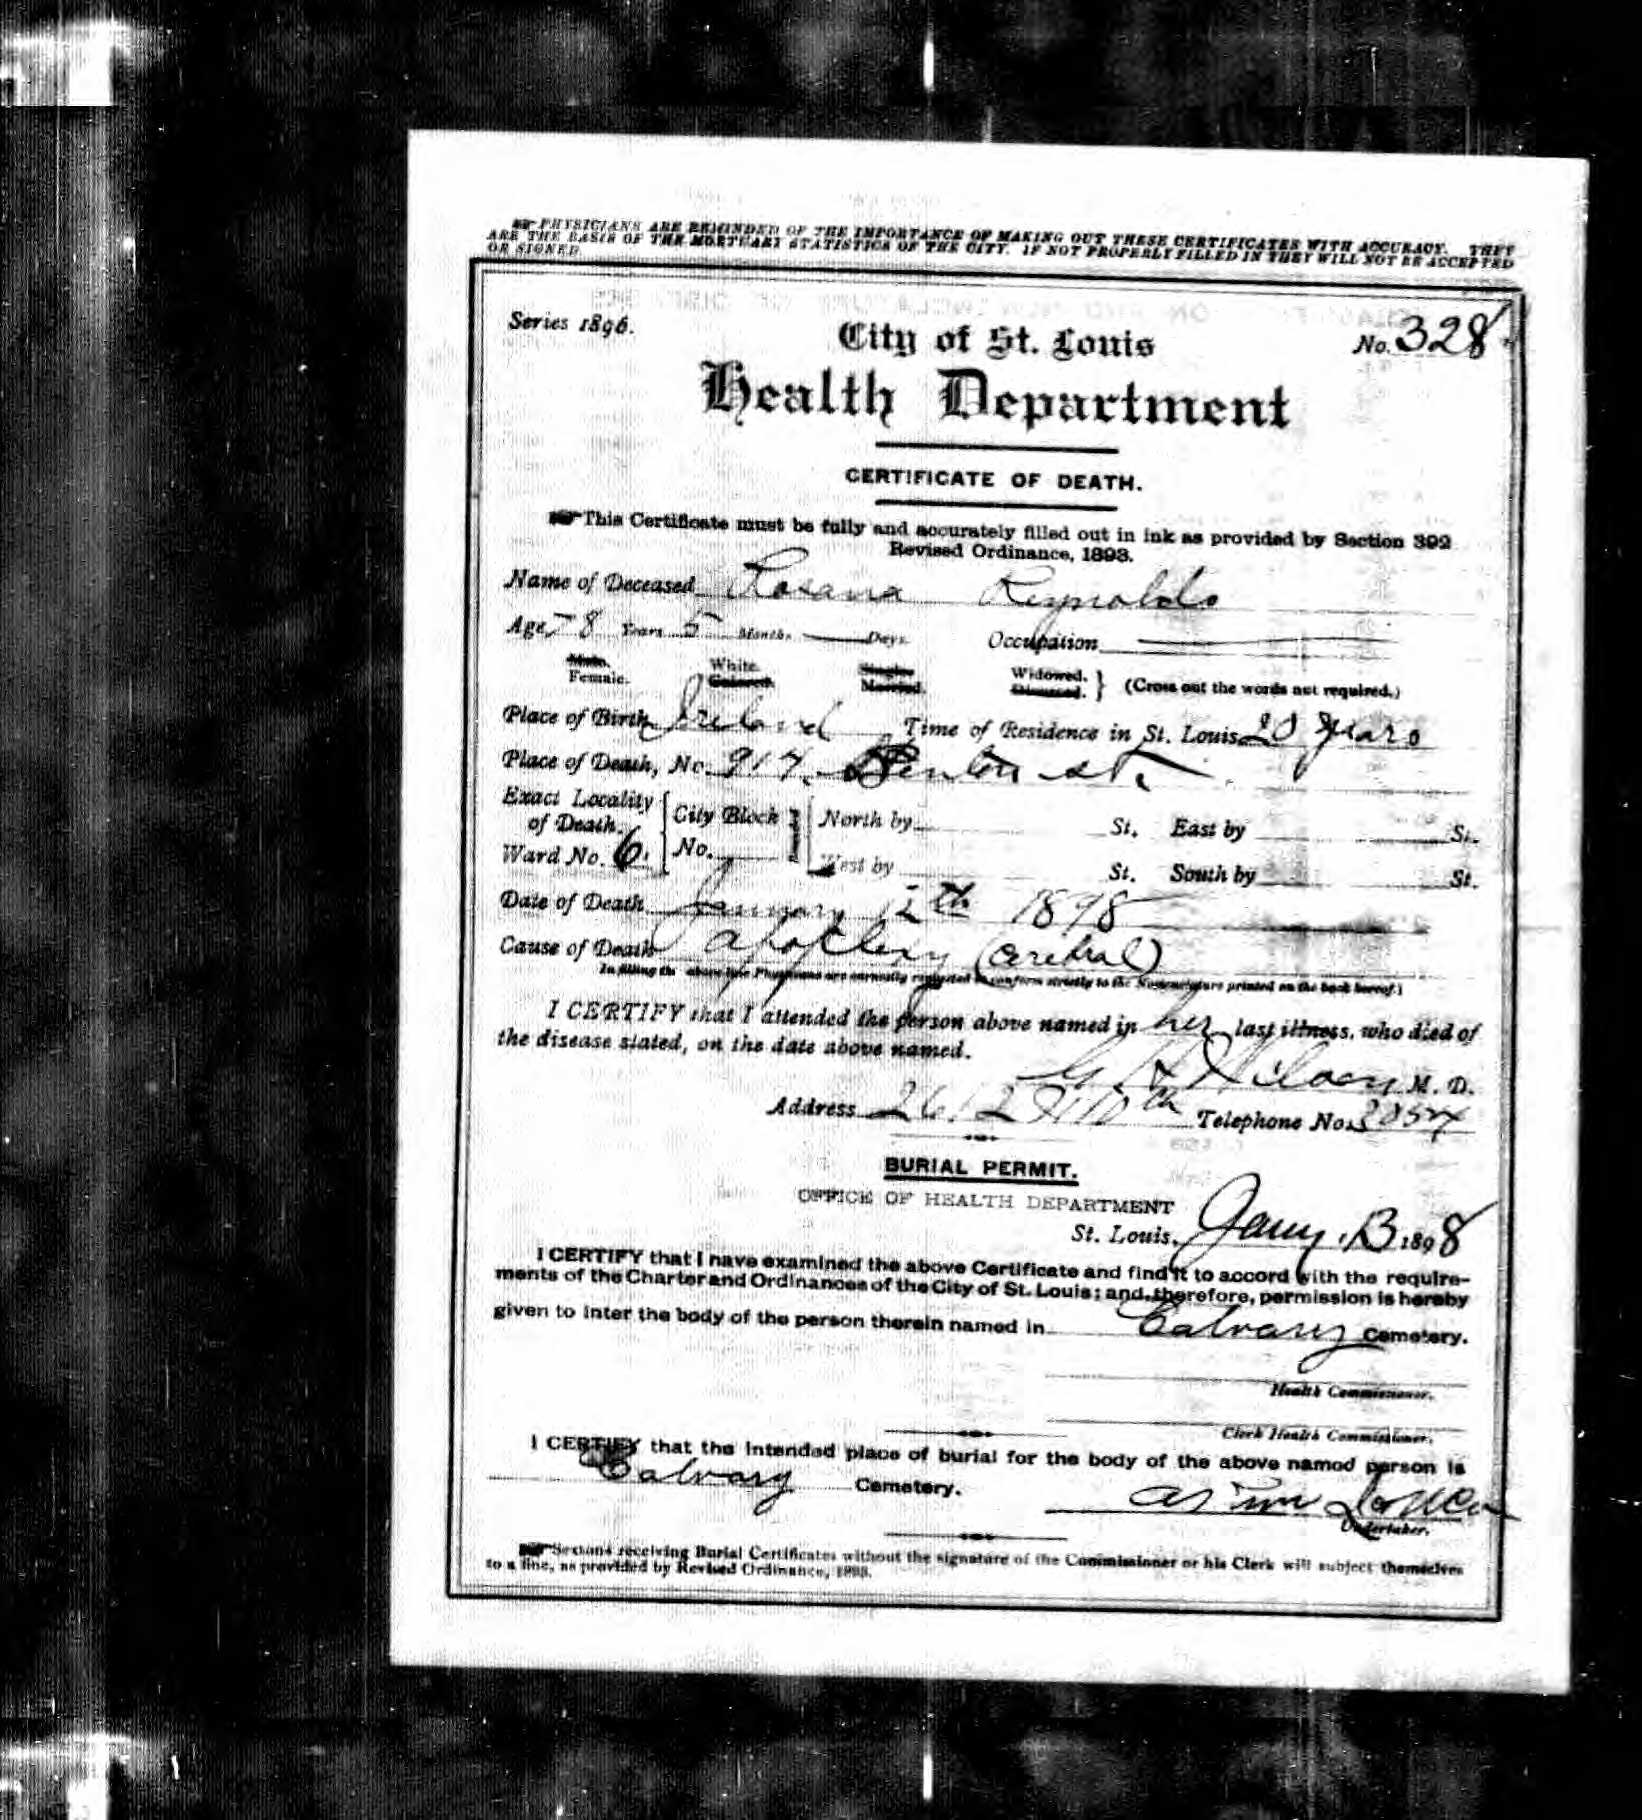 PHYSICIANS ARE REMINDED OF THE IMPORTANCE OF MAKING OUT THESE CERTIFICATES WITH ACCURACY. THEY
ARE THE BASIS OF THE MORTUARY STATISTICS OF THE CITY. IF NOT PROPERLY FILLED IN THEY WILL NOT BE ACCEPTED
OR SIGNED
Series 1896.
No. 328
City of St. Louis
Health Department
CERTIFICATE OF DEATH.
This Certificate must be fully and accurately filled out in ink as provided by Section 392
Revised Ordinance, 1893.
Name of Deceased Rosana Reynolds
Age, 8 Years 5 Months. Days. Occupation
Male. White. Single Widowed.
Female. Colored. Married. Divorced. } (Cross out the words not required.)
Place of Birth Ireland Time of Residence in St. Louis 20 years
Place of Death, No. 917. Benton st.
Exact Locality of Death. { City Block North by St. East by St.
Ward No. 6. No. West by St. South by St.
Date of Death January 12th 1898
Cause of Death apoplexy (Cerebral)
In filling the above line Physicians are earnestly requested to conform strictly to the Nomenclature printed on the back hereof.)
I CERTIFY that I attended the person above named in her last illness, who died of
the disease stated, on the date above named.
M. D.
Address 2612 N 10th Telephone No.
BURIAL PERMIT.
OFFICE OF HEALTH DEPARTMENT
St. Louis, Jany. 13 1898
I CERTIFY that I have examined the above Certificate and find it to accord with the require-
ments of the Charter and Ordinances of the City of St. Louis; and, therefore, permission is hereby
given to inter the body of the person therein named in Calvary Cemetery.
Health Commissioner.
Clerk Health Commissioner.
I CERTIFY that the intended place of burial for the body of the above named person is
Calvary Cemetery.
Undertaker.
Sextons receiving Burial Certificates without the signature of the Commissioner or his Clerk will subject themselves
to a fine, as provided by Revised Ordinance, 1893.